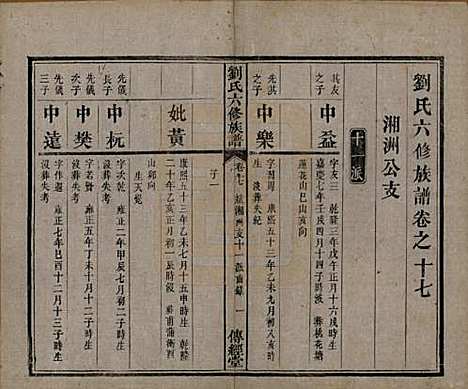 劉氏六修族譜卷之十七
湘洲公支
十一派
其友之子
中益
字友三乾隆三年戊午正月十六戌時生
嘉慶七年壬戌四月十四子時沒葬桃花塘
蓮花山巳山亥向
先淇之子
中樂
字
康熙五十三年乙未九月初八亥時
生沒葬失紀
劉氏六修族譜
卷十七
湘洲支十一派齒錄
一
傳經堂
子一
妣黃
康熙五十年乙未七月十五申時生
乾隆
二十年乙亥正月初一辰時沒葬
山卯向
生天
先儀長子
中杬
字次乾雍正二年甲辰七月初二子時生
沒葬失考
先儀次子
中樊
字若賢
十月十二子時生
沒葬失考
先儀三子
中遠
字作遐雍正七年己酉十二月十三子時生
沒葬失考